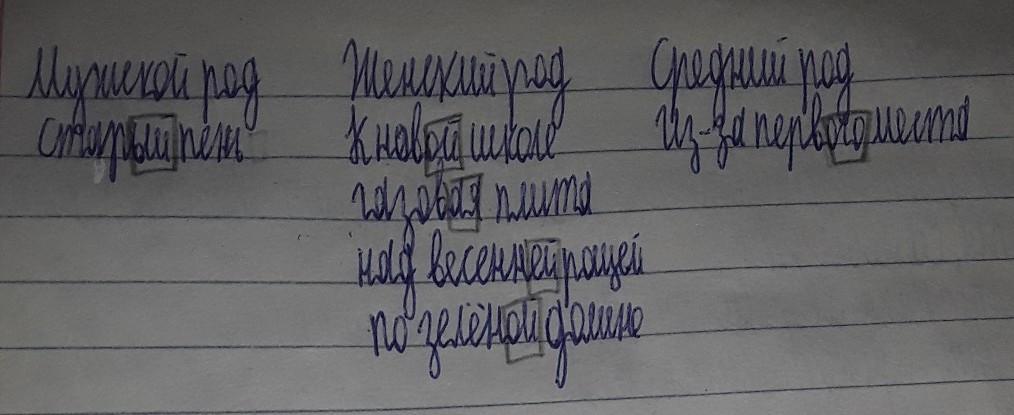 Мужской род Женский род Средний род
старый пень к новой школе из-за первого места
газовая плита
над весенней рощей
по зелёной долине